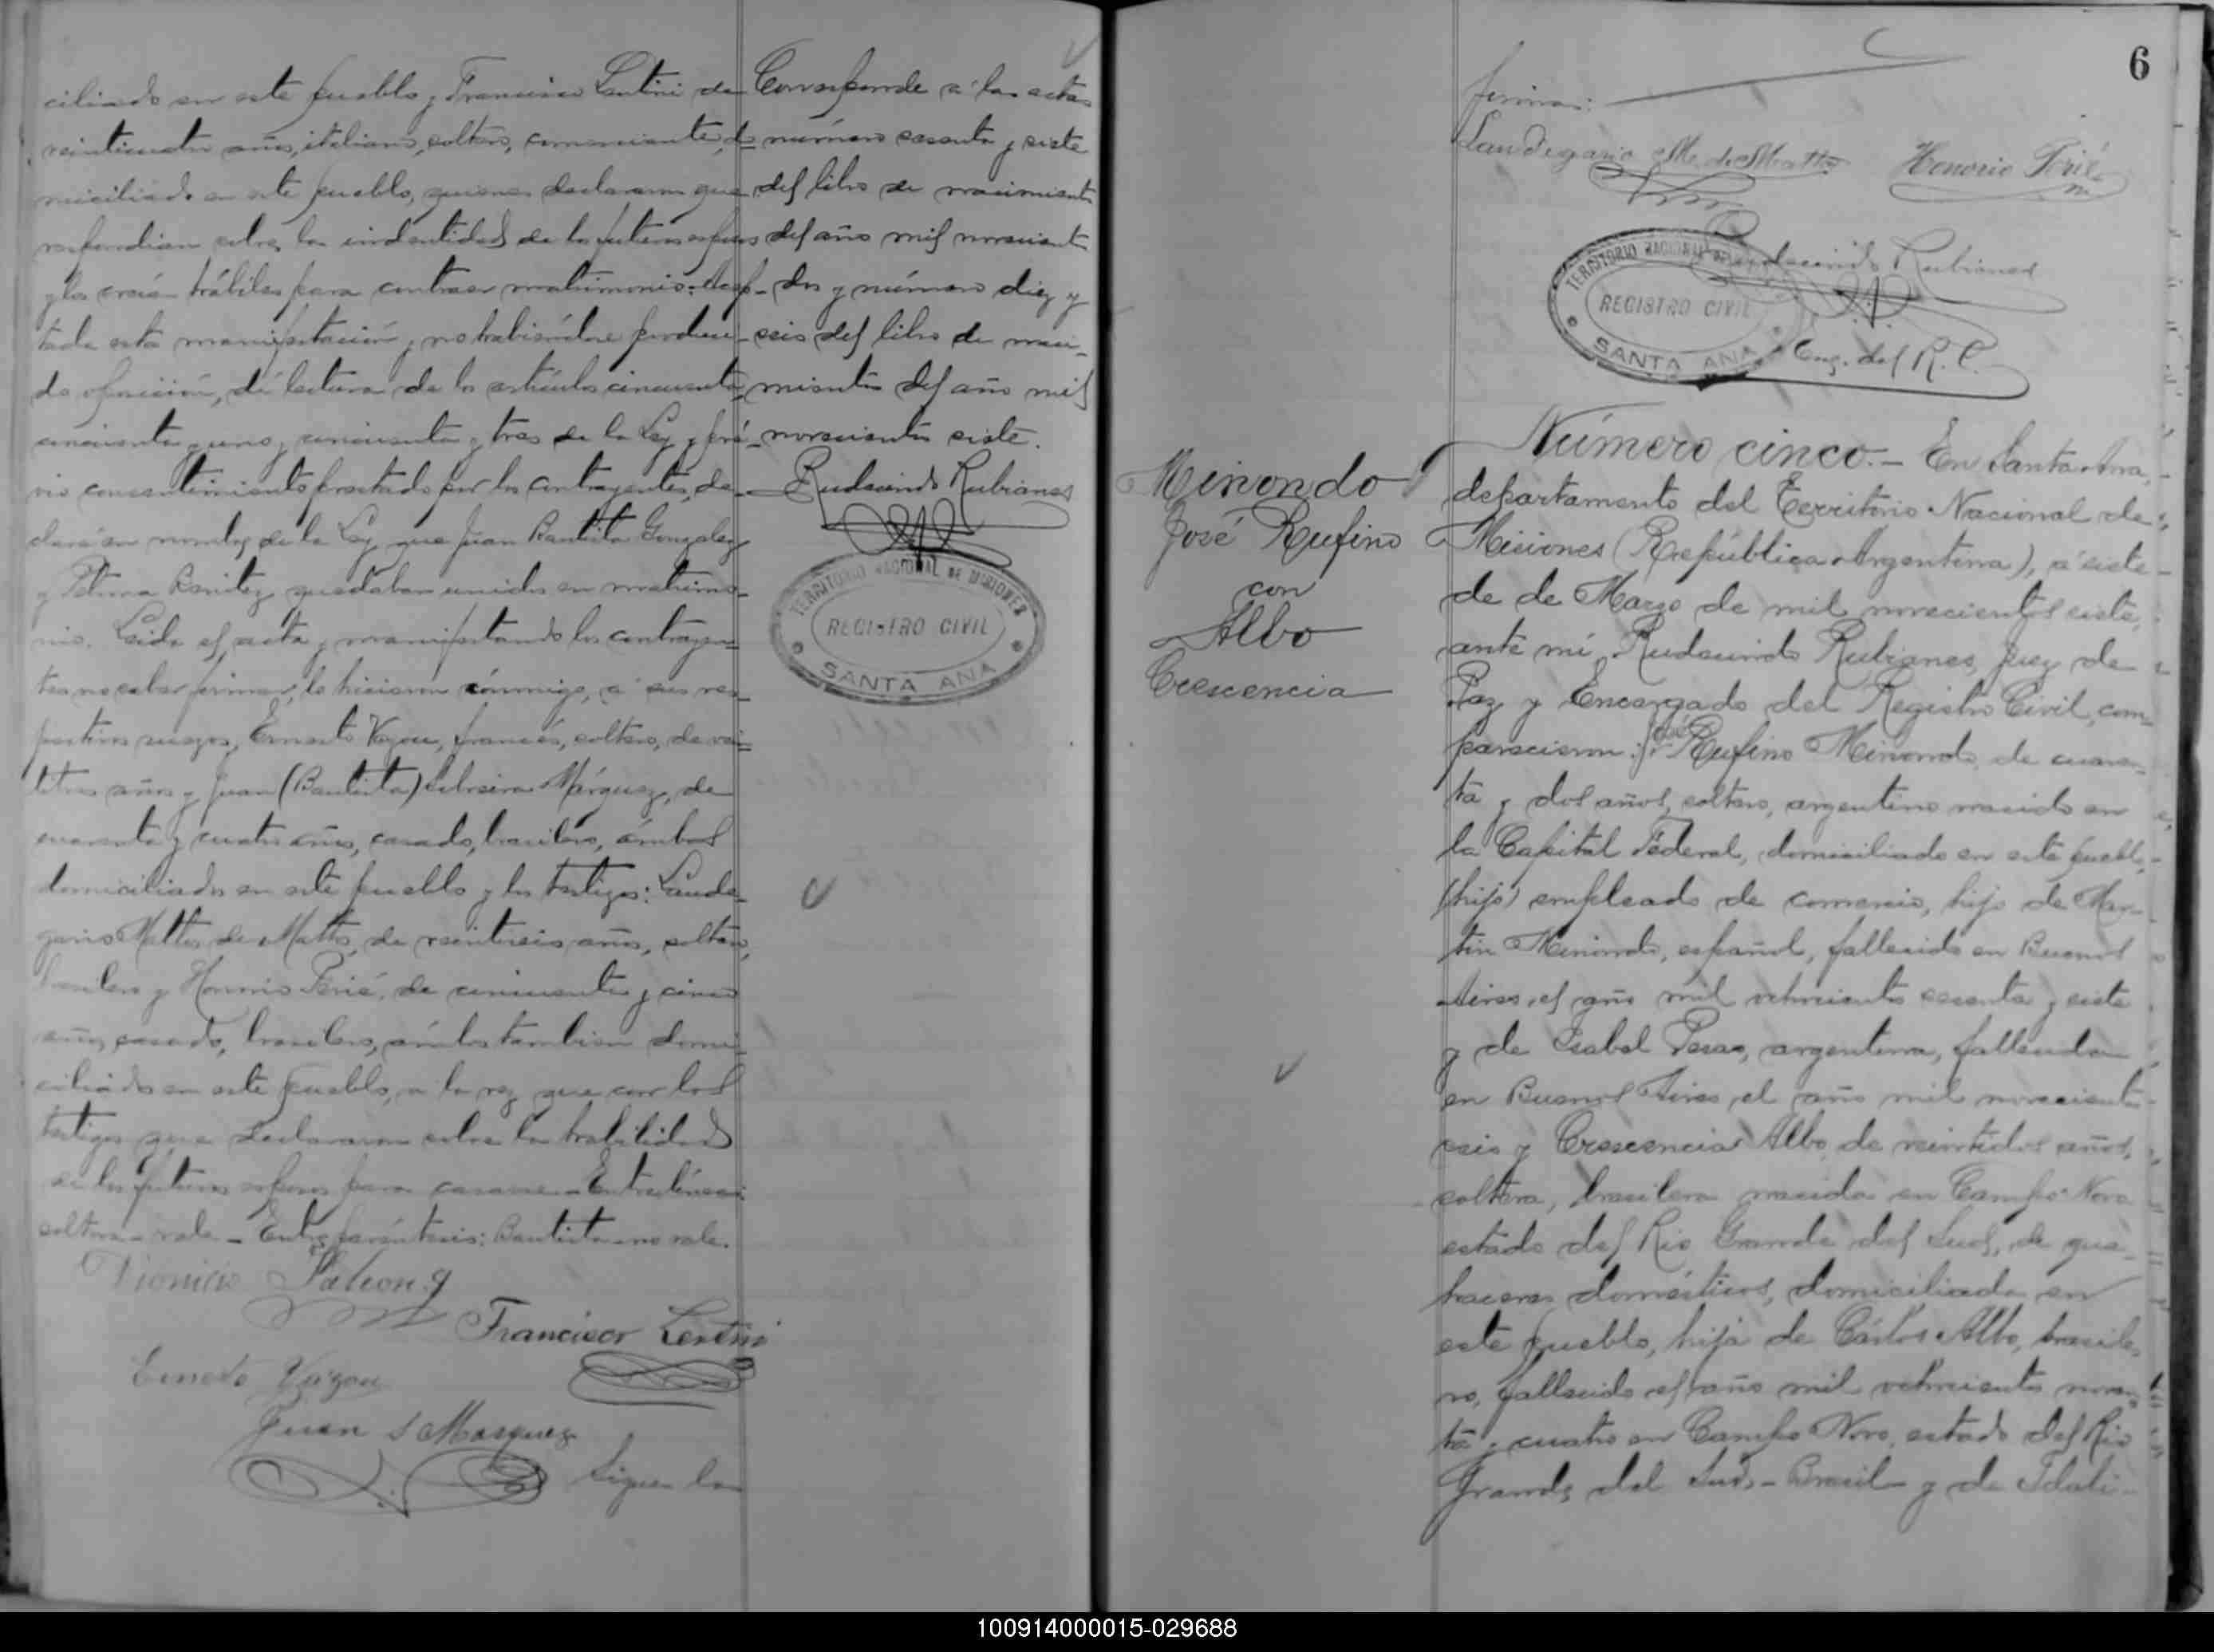 ciliado en este pueblo y Francisco Lentini de
veinticuatro años, italiano, soltero, comerciante, do
miciliado en este pueblo, quienes declararon que
respondian sobre la indentidad de los futuros esposos
y los creian hábiles para contraer matrimonio: Acep-
tada esta manifestación y no habiéndose produci-
do oposición, dí lectura de los artículos cincuenta,
cincuenta y uno y cincuenta y tres de la Ley y pré-
vio consentimiento prestado por los contrayentes, de-
claré en nombre de la Ley que Juan Bautista Gonzalez
y Petrona Benitez quedaban unidos en matrimo-
nio. Leida el acta y manifestando los contrayen-
tes no saber firmar, lo hicieron cónmigo, a sus res-
pectivos ruegos, Ernesto Vazou, francés, soltero, de vein
titres años y Juan (Bautista) Márquez, de
cuarenta y cuatro años, casado, brasilero, ámbos
domiciliados en este pueblo y los testigos: Laude-
gario Mattos de Mattos, de veintiseis años, soltero,
brasilero y Honorio Perié, de cincuenta y cinco
años, casado, brasilero, ámbos tambien domi-
ciliados en este pueblo, a la vez que con los
testigos que declararon sobre la habilidad
de los futuros esposos para casarse - Entrelíneas:
soltera - vale - Entre paréntesis: Bautista - no vale.
Dionicio
Francisco Lentini
Ernesto Vazou
Juan S Marquez
Siguen las
Corresponde a las actas
número sesenta y siete
del libro de nacimientos
del año mil novecientos
dos y número diez y
seis del libro de naci-
mientos del año mil
novecientos siete.
Rudecindo Rubianes
TERRITORIO NACIONAL DE MISIONES
REGISTRO CIVIL
SANTA ANA
6
firmas:
Laudegario M. de Mattos Honorio Perié
Rudecindo Rubianes
TERRITORIO NACIONAL DE
REGISTRO CIVIL
SANTA ANA
Enc. del R. C.
Minondo
José Rufino
con
Albo
Crescencia
Número cinco. - En Santa Ana,
departamento del Territorio Nacional de
Misiones (República Argentina), a siete
de de Marzo de mil novecientos siete,
ante mí, Rudecindo Rubianes, Juez de
Paz y Encargado del Registro Civil, com-
parecieron: José Rufino Minondo, de cuaren-
ta y dos años, soltero, argentino nacido en
la Capital Federal, domiciliado en este pueblo,
(hijo) empleado de comercio, hijo de Mar-
tin Minondo, español, fallecido en Buenos
Aires, el año mil ochocientos sesenta y siete
y de Isabel, argentina, fallecida
en Buenos Aires el año mil novecientos
seis y Crescencia Albo, de veintidos años,
soltera, brasilera nacida en Campo Novo
estado del Rio Grande del Sud, de que-
haceres domésticos, domiciliada en
este pueblo, hija de Cárlos Albo, brasile-
ro, fallecido el año mil ochocientos noven-
ta y cuatro en Campo Novo, estado del Rio
Grande del Sud - Brasil - y de Idali-
100914000015-029688